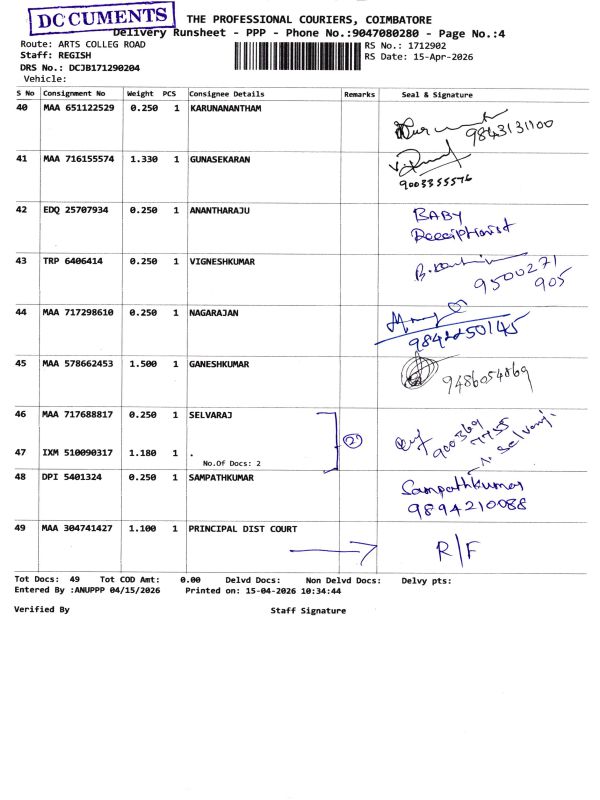 DOCUMENTS
THE PROFESSIONAL COURIERS, COIMBATORE
Delivery Runsheet - PPP - Phone No.:9047080280 - Page No.:4
Route: ARTS COLLEG ROAD
RS No.: 1712902
Staff: REGISH
RS Date: 15-Apr-2026
DRS No.: DCJB171290204
Vehicle:
S No Consignment No Weight PCS Consignee Details Remarks Seal & Signature
40 MAA 651122529 0.250 1 KARUNANANTHAM
9843131100
41 MAA 716155574 1.330 1 GUNASEKARAN
9003355576
42 EDQ 25707934 0.250 1 ANANTHARAJU BABY
Receiptionist
43 TRP 6406414 0.250 1 VIGNESHKUMAR
9500271
905
44 MAA 717298610 0.250 1 NAGARAJAN
45 MAA 578662453 1.500 1 GANESHKUMAR
9486054869
46 MAA 717688817 0.250 1 SELVARAJ
(2)
900369
7755
N. Selvaraj.
47 IXM 510090317 1.180 1 .
No.Of Docs: 2
48 DPI 5401324 0.250 1 SAMPATHKUMAR Sampathkumar
9894210088
49 MAA 304741427 1.100 1 PRINCIPAL DIST COURT
R/F
Tot Docs: 49 Tot COD Amt: 0.00 Delvd Docs: Non Delvd Docs: Delvy pts:
Entered By :ANUPPP 04/15/2026 Printed on: 15-04-2026 10:34:44
Verified By Staff Signature